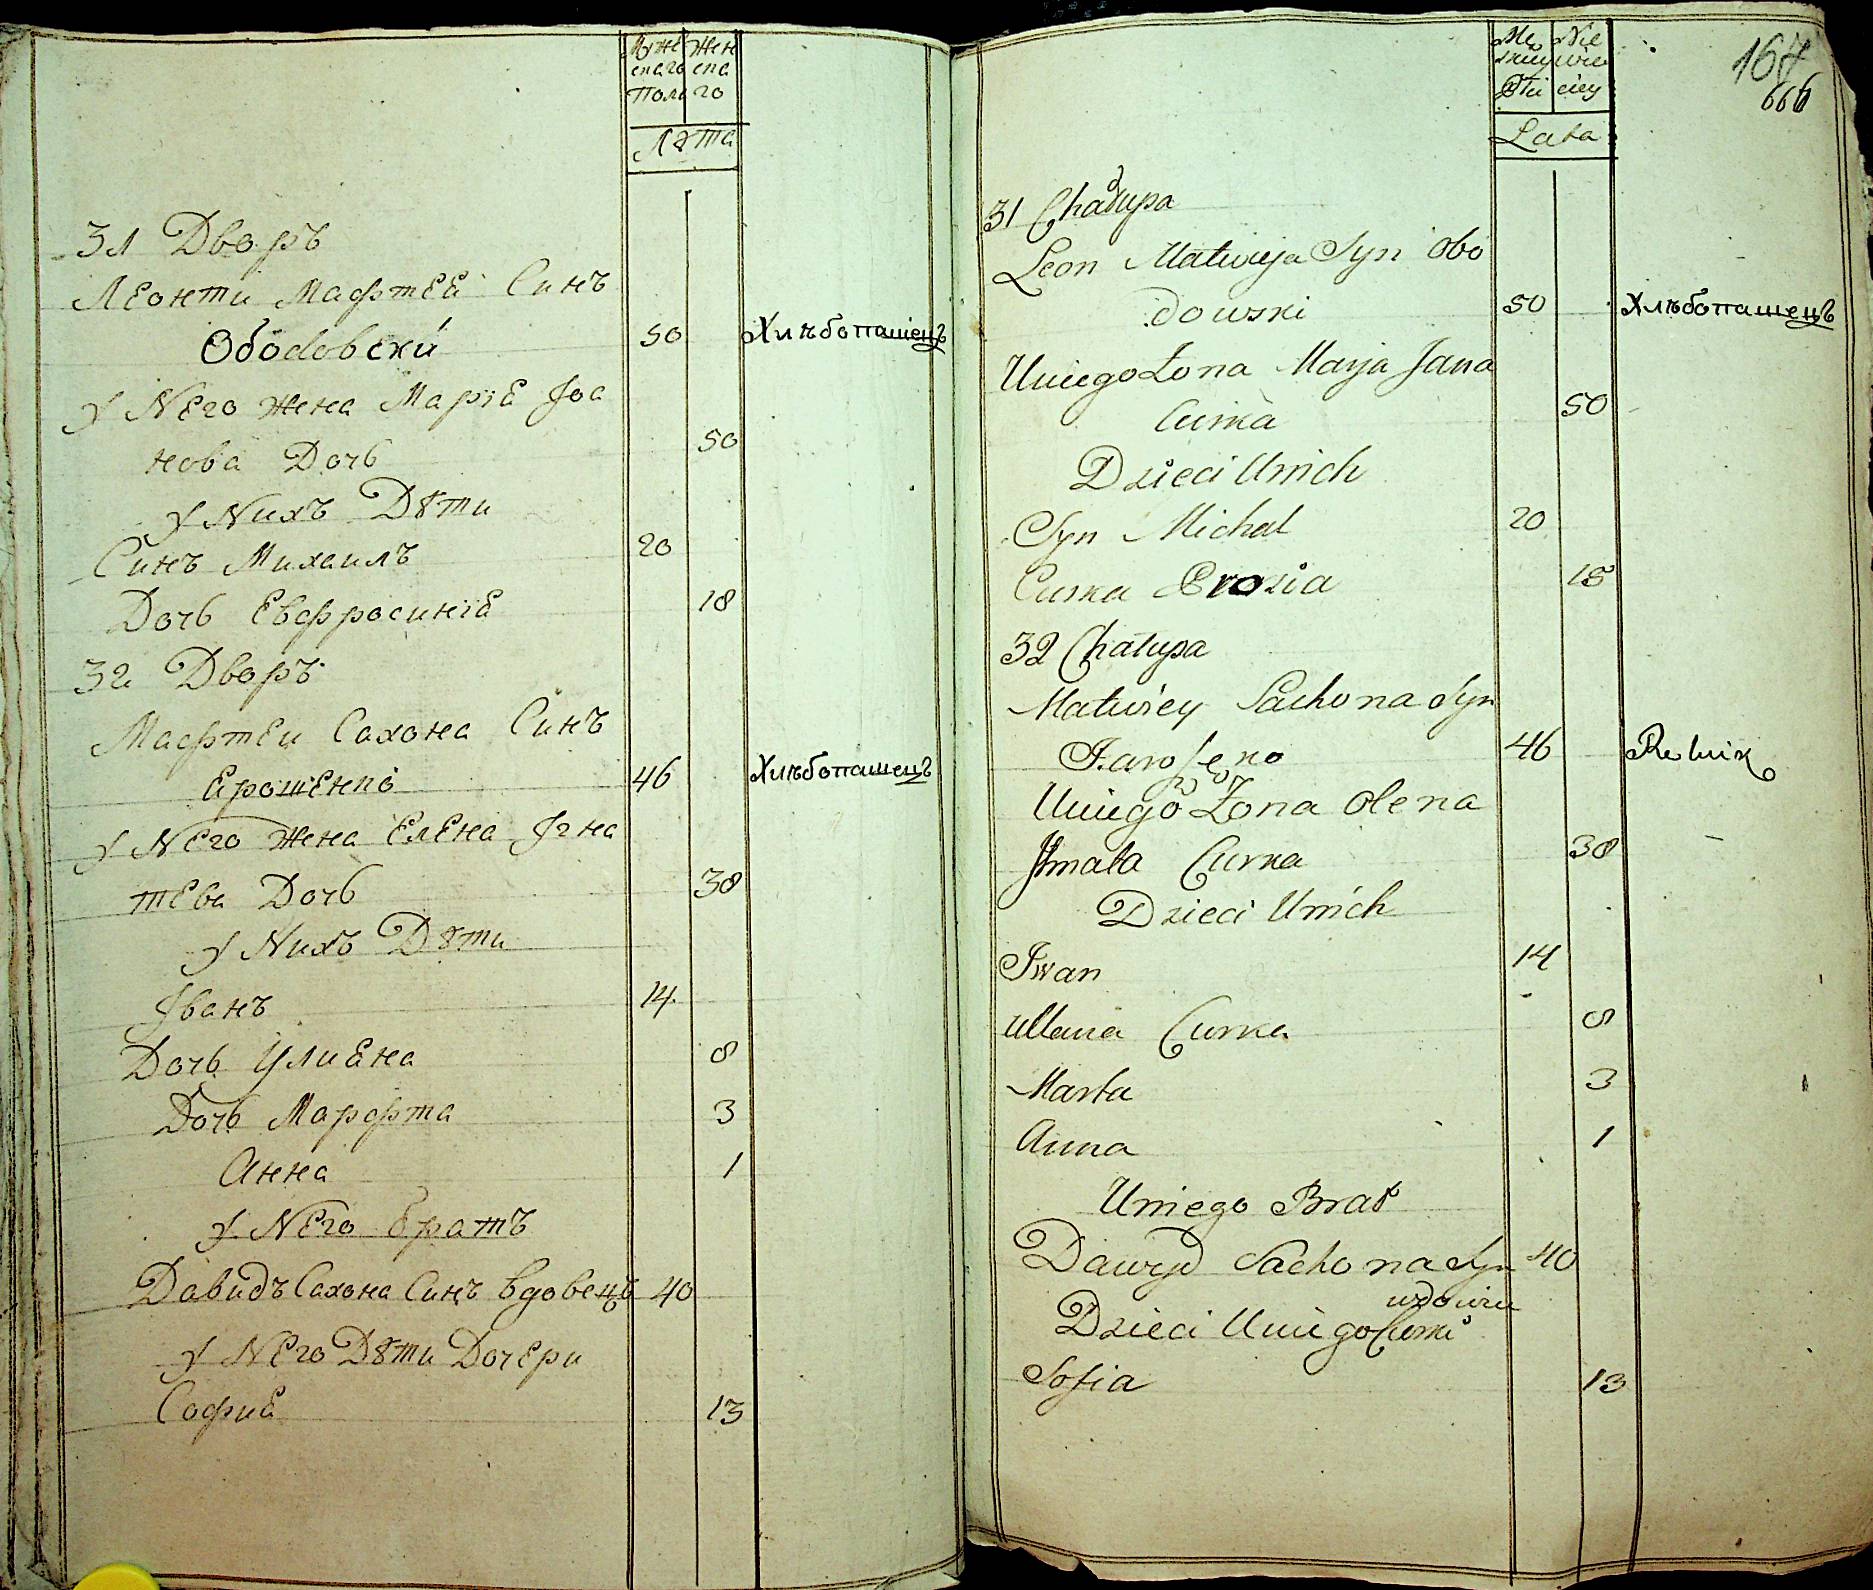 Муже Жен
скаго ска
Полу го
Лѣта
31 Дворъ
Леонти Мафтей Синъ
Ободовски 50 Хлѣбопашецъ
У Него жена Маріе Іоа
нова Дочь 50
У Нихъ Дѣти
Синъ Михаилъ 20
Дочь Евфросиніе 18
32 Дворъ
Мафтеи Сахона Синъ
Ерошенко 46 Хлѣбопашецъ
У Него жена Елена Ігна
тева Дочь 38
У Нихъ Дѣти
Іванъ 14
Дочь Улиена 8
Дочь Марфта 3
Анна 1
У Него братъ
Давидъ Сахона Синъ вдовецъ 40
У Него Дѣти Дочери
Софие 13
167
666
Lata
31 Chałupa
Leon Matwieja Syn Obo
dowski 50 Хлѣбопашецъ
Uniego Żona Marja Jana
Curka 50
Dzieci Unich
Syn Michał 20
Curka Prozia 18
32 Chałupa
Matwiey Sachona Syn
Jaroszenko 46 Rolnik
Uniego Żona Olena
Ihnata Curka 38
Dzieci Unich
Iwan 14
Ullana Curka 8
Marta 3
Anna 1
Uniego Brat
Dawyd Sachona Syn 40
wdowiec
Dzieci Uniego Curki
Sofia 13